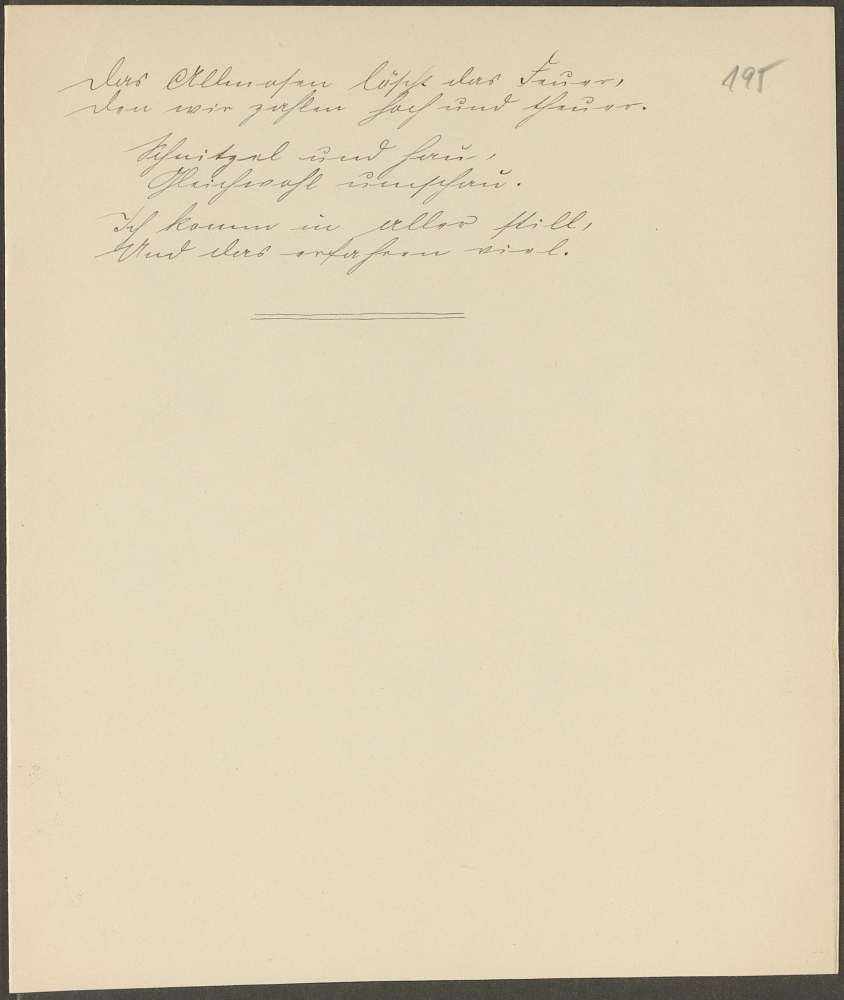 Das Allmosen löscht das Feuer,
den wir zahlen hoch und theuer.
Schnitzel und hau,
Gleichwohl umschau.
Ich komm in aller still,
Und das erfahren viel.
195